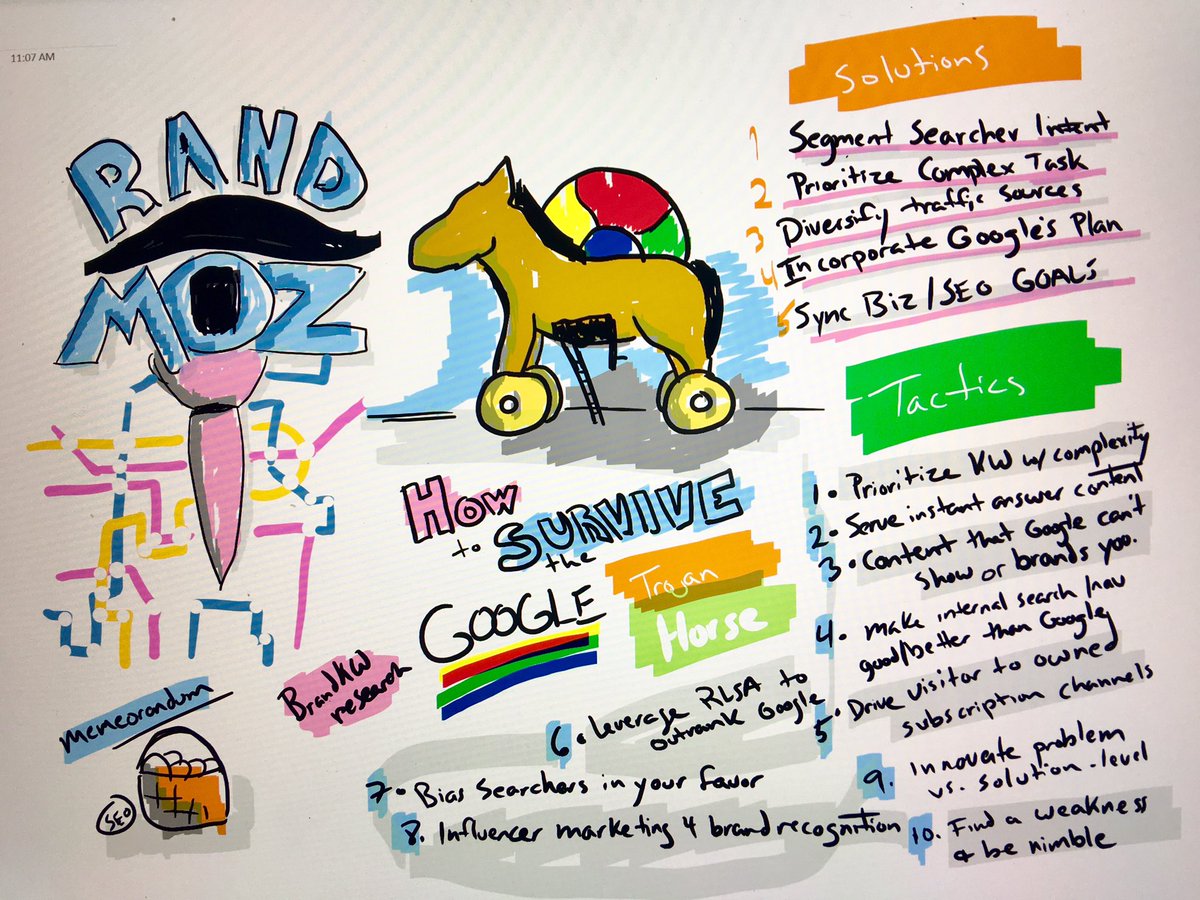 11:07 AM
RAND
MOZ
HOW
to SURVIVE
the
GOOGLE
Trojan
Horse
Brand KW
research
memeorandum
SEO
Solutions
1 Segment Searcher Intent
2 Prioritize Complex Task
3 Diversify traffic sources
4 Incorporate Google's Plan
5 Sync Biz/SEO GOALS
Tactics
1. Prioritize KW w/ complexity
2. Serve instant answer content
3. Content that Google can't
show or brands you.
4. make internal search/nav
good/better than Google
5. Drive visitor to owned
subscription channels
6. Leverage RLSA to
outrank Google
7. Bias Searchers in your favor
8. Influencer marketing 4 brand recognition
9. Innovate problem
vs. solution-level
10. Find a weakness
+ be nimble